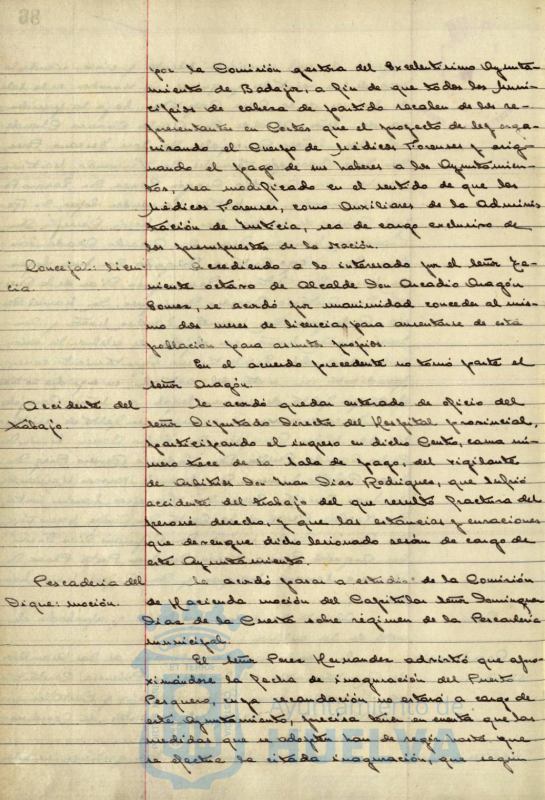 por la Comisión gestora del Excelentísimo Ayunta-
miento de Badajoz, a fin de que todos los Muni-
cipios de cabeza de partido recaben de sus re-
presentantes en Cortes que el proyecto de ley orga-
nizando el Cuerpo de Médicos Forenses y asig-
nando el pago de sus haberes a los Ayuntamien-
tos, sea modificado en el sentido de que los
Médicos Forenses, como Auxiliares de la Adminis-
tración de Justicia, sea de cargo exclusivo de
los presupuestos de la Nación.
Concejal: licen-
cia.
Accediendo a lo interesado por el señor Te-
niente octavo de Alcalde Don Arcadio Aragón
Gomez, se acordó por unanimidad conceder al mis-
mo dos meses de licencia, para ausentarse de esta
población para asuntos propios.
En el acuerdo precedente no tomó parte el
señor Aragón.
Accidente del
trabajo.
Se acordó quedar enterado de oficio del
señor Diputado Director del Hospital provincial,
participando el ingreso en dicho Centro, cama nú-
mero trece de la Sala de pago, del vigilante
de Arbitrios Don Juan Diaz Rodriguez, que sufrió
accidente del trabajo del que resultó fractura del
peroné derecho, y que las estancias y curaciones
que devengue dicho lesionado serán de cargo de
este Ayuntamiento.
Pescaderia del
Dique: moción.
Se acordó pasar a estudio de la Comisión
de Hacienda moción del Capitular señor Dominguez
Diaz de la Cuesta sobre régimen de la Pescaderia
municipal.
El señor Perez Hernandez advirtió que apro-
ximándose la fecha de inauguración del Puerto
Pesquero, cuya recaudación no estará a cargo de
este Ayuntamiento, precisa tener en cuenta que las
medidas que se adopten han de regir hasta que
se efectue la citada inauguración, que según
Ayuntamiento de
HUELVA